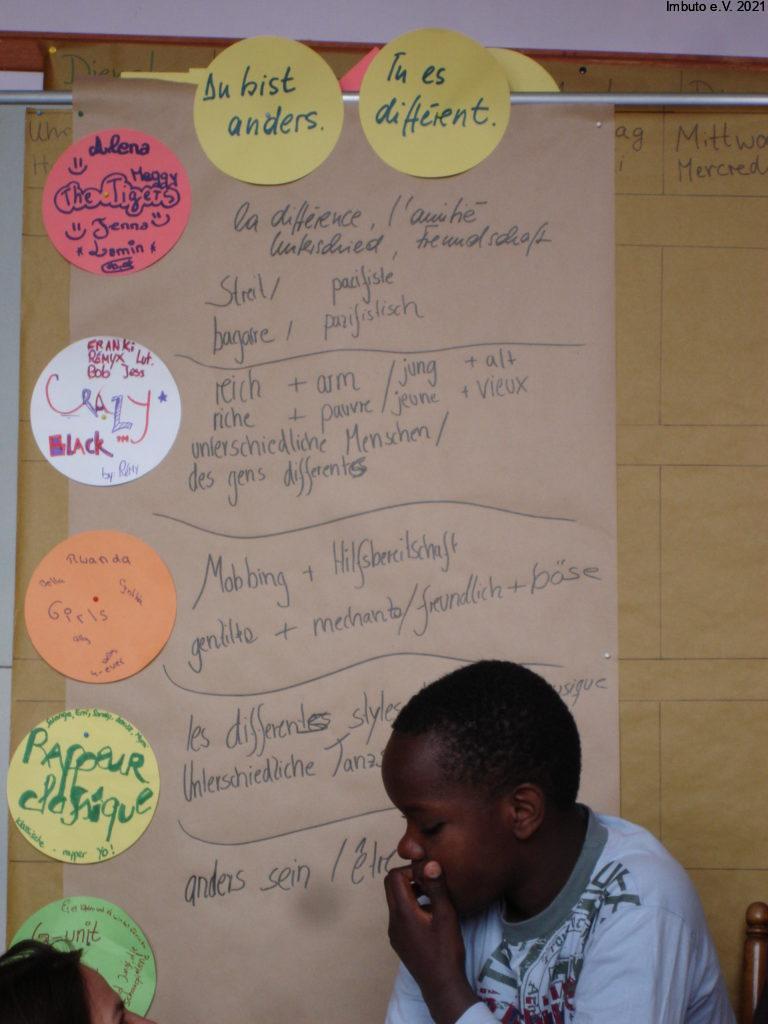 Imbuto e.V. 2021
Du bist
anders.
Tu es
différent.
Mittwo
Mercred
ag
Aulena
Meggy
The Tigers
Jenna
Lamin
la différence, l'amitié
Unterschied, Freundschaft
Streit/ pacifiste
bagarre / pazifistisch
FRANKi
RÉMYX Lut.
Bob Jess
CRAZY
BLACK
by Rémy
reich + arm / jung + alt
riche + pauvre / jeune + vieux
unterschiedliche Menschen/
des gens differentes
Rwanda
Girls
4-ever
Mobbing + Hilfsbereitschaft
gentilte + mechante/freundlich + böse
Rappeur
classique
klassische rapper Yo!
les differentes styles
usique
Unterschiedliche Tanz
anders sein / être
G-unit